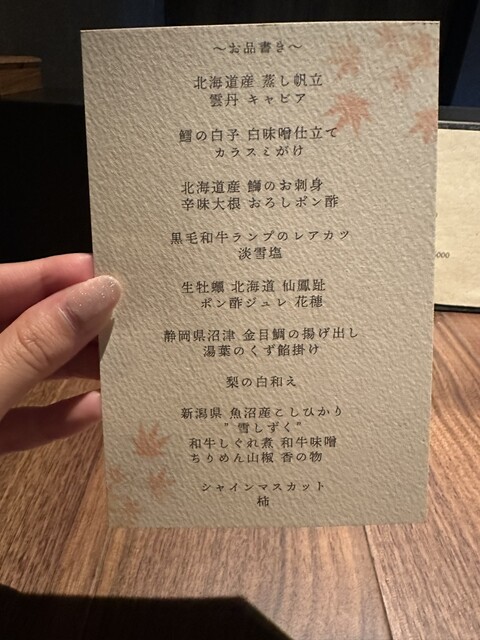 ～お品書き～
北海道産 蒸し帆立
雲丹 キャビア
鱈の白子 白味噌仕立て
カラスミがけ
北海道産 鰤のお刺身
辛味大根 おろしポン酢
黒毛和牛ランプのレアカツ
淡雪塩
生牡蠣 北海道 仙鳳趾
ポン酢ジュレ 花穂
静岡県沼津 金目鯛の揚げ出し
湯葉のくず餡掛け
梨の白和え
新潟県 魚沼産こしひかり
"雪しずく"
和牛しぐれ煮 和牛味噌
ちりめん山椒 香の物
シャインマスカット
柿